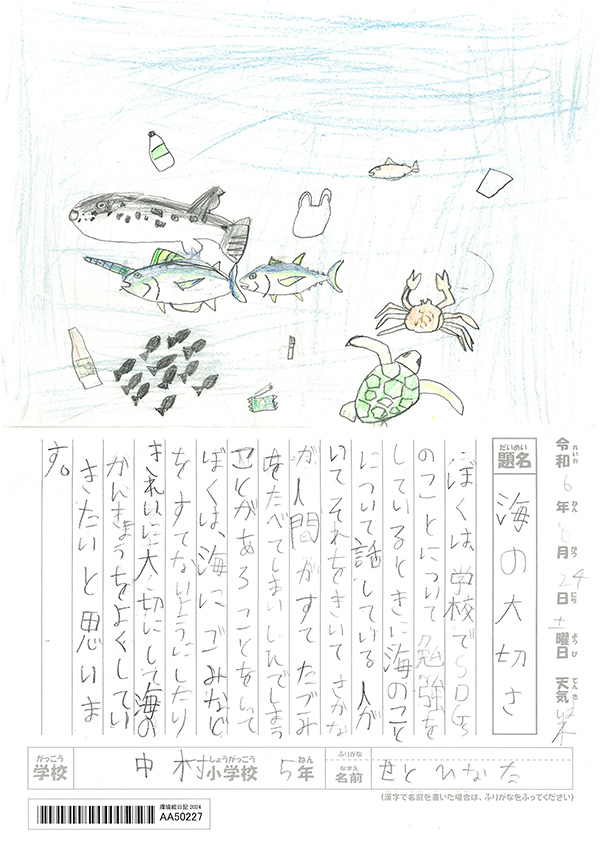 令和6年8月24日土曜日 天気
れいわ ねん がつ にち ようび てんき
だいめい
題名 海の大切さ
ぼくは、学校でSDGs
のことについて勉強を
しているときに海のこと
について話している人が
いてそれをきいてさかな
が人間がすてたゴみ
をたべてしまいしんでしまう
ことがあることを
ぼくは、海にゴみなど
をすてないようにしたり
きれいに大切にして海の
かんきょうをよくしてい
きたいと思いま
す。
がっこう しょうがっこう ねん
学校 中村小学校 5年
ふりがな
なまえ
名前 せと ひなた
(漢字で名前を書いた場合は、ふりがなをふってください)
環境絵日記 2024
AA50227